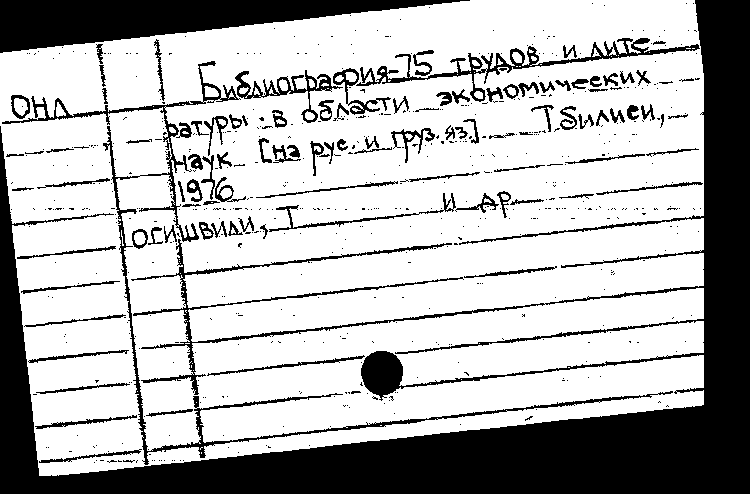 Библиография-75 трудов и лите-
ОНЛ
ратуры в области экономических
наук [на рус. и груз. яз.] Тбилиси,
1976
Гогишвили, Т и др